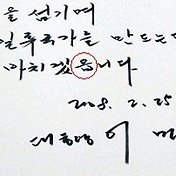 을 섬기며
일류국가를 만드는
바치겠읍니다
2008. 2. 25
대통령 이